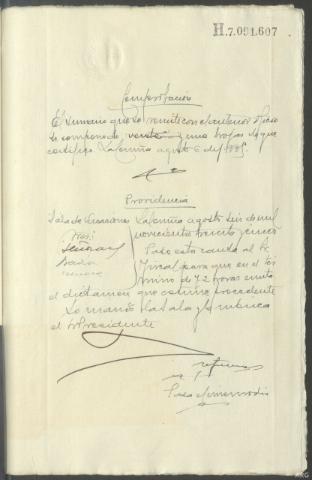 H.7.091.607
Composición
El sumario que se remite con el anterior oficio
se compone de veinte y una hojas de que
certifico. La Coruña agosto 6 de 1935.
Providencia
Sala de Vacaciones La Coruña agosto seis de mil
Sres: novecientos treinta y cinco
Pase esta causa al
Fiscal para que en el tér
mino de 72 horas emita
el dictamen que estime procedente
Lo mandó la Sala y lo rubrica
el Sr Presidente